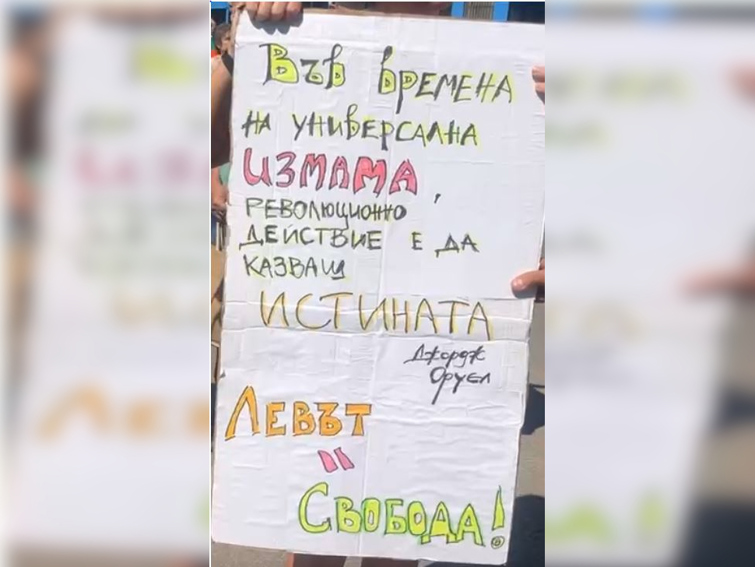 Във времена
на универсална
ИЗМАМА,
РЕВОЛЮЦИОННО
ДЕЙСТВИЕ Е ДА
КАЗВАШ
ИСТИНАТА
Джордж
Оруел
ЛЕВЪТ
"
СВОБОДА!